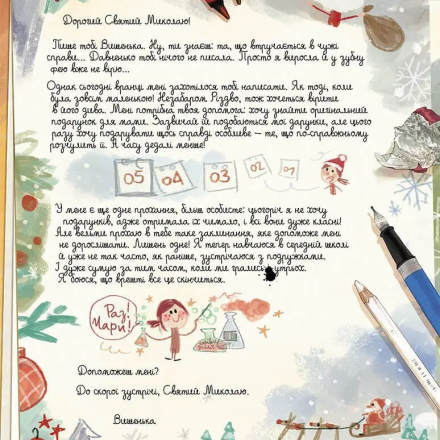 Дорогий Святий Миколаю!
Пише тобі Вишенька. Ну, ти знаєш: та, що втручається в чужі
справи... Давненько тобі нічого не писала. Просто я виросла й у зубну
фею вже не вірю...
Однак сьогодні вранці мені захотілося тобі написати. Як тоді, коли
була зовсім маленькою! Незабаром Різдво, тож хочеться вірити
в його дива. Мені потрібна твоя допомога: хочу знайти оригінальний
подарунок для мами. Зазвичай їй подобаються мої дарунки, але цього
разу хочу подарувати щось справді особливе – те, що по-справжньому
розчулить її. А часу дедалі менше!
05 04 03 02 01
У мене є ще одне прохання, більш особисте: цьогоріч я не хочу
подарунків, адже отримала їх чимало, і всі вони дуже класні!
Але вельми прохаю в тебе таке заклинання, яке допоможе мені
не дорослішати. Лишень одне! Я тепер навчаюся в середній школі
й уже не так часто, як раніше, зустрічаюся з подружками.
І дуже сумую за тим часом, коли ми грались утрьох.
Я боюся, що врешті все це скінчиться.
Раз!
Мари!
Допоможеш мені?
До скорої зустрічі, Святий Миколаю.
Вишенька